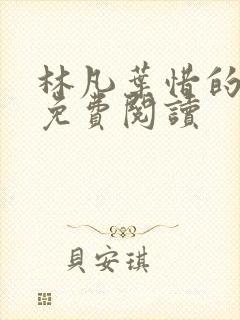 林凡葉惜的
免費閱讀
貝安琪